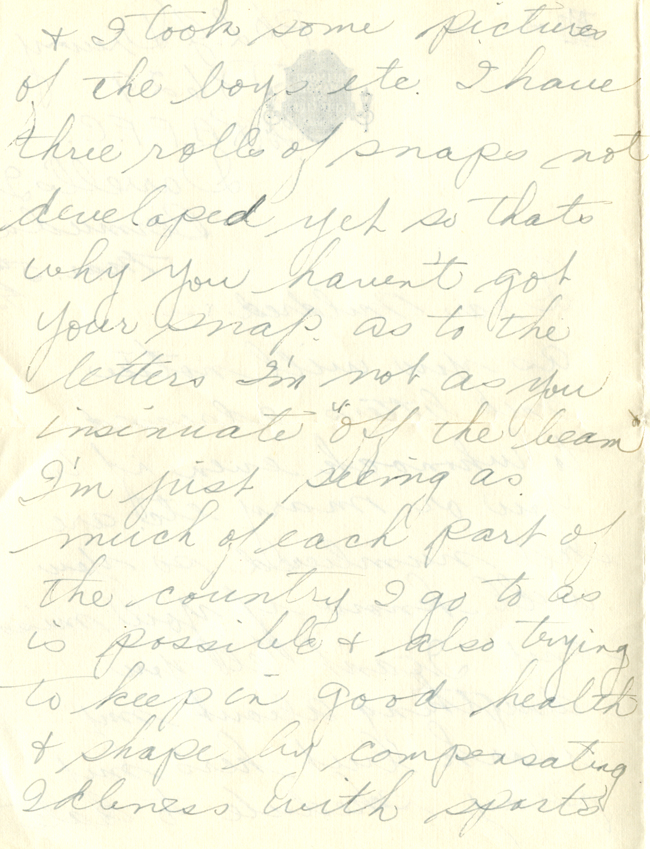 & I took some pictures
of the boys etc. I have
three rolls of snaps not
developed yet so thats
why you haven't got
your snap. as to the
letters I'm not as you
insinuate "off the beam"
I'm just seeing as
much of each part of
the country I go to as
is possible & also trying
to keep in good health
& shape by compensating
Idleness with sports